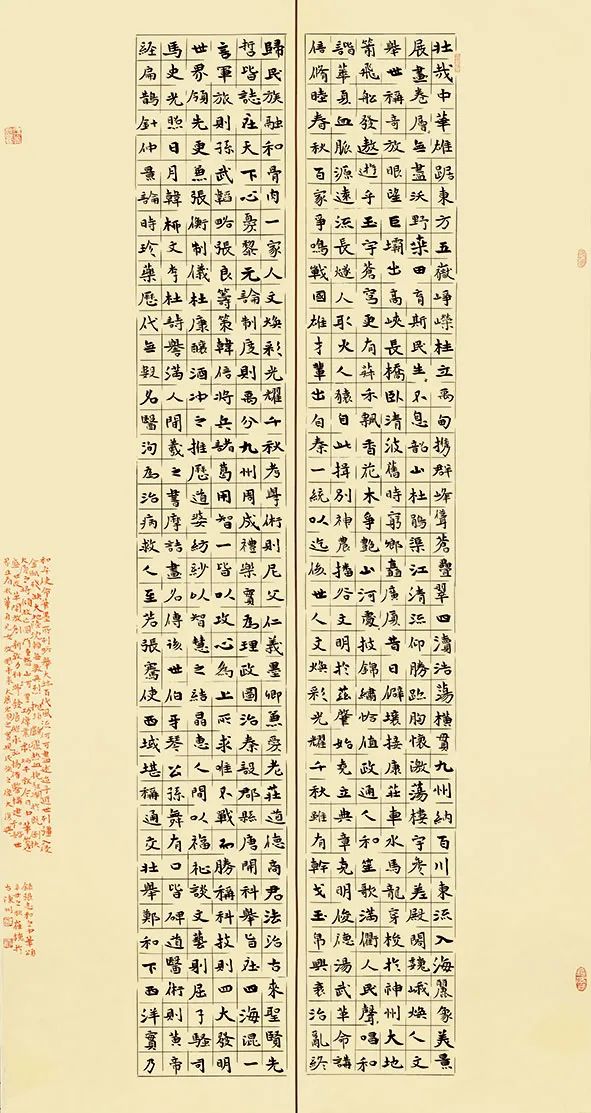 壯哉中華雄踞東方五嶽崢嶸柱立禹甸攜群峰聳蒼疊翠四瀆浩蕩橫貫九州納百川東流入海麗象美景
辰畫卷層無盡沃野桑田育斯民生不息韶山杜鵑渠江清流仰勝跡胸懷激蕩樓宇參差殿閣巍峨煥人文
舉世稱奇放眼望巨壩出高峽長橋臥清波舊時窮鄉矗廣廈昔日僻壤接康莊車水馬龍穿梭於神州大地
箭飛船發遨遊乎玉宇蒼穹更有禾飄香花木爭艷山河技錦繡恰值政通人和笙歌滿衢人民聲唱和
諧華夏血脈源遠流長燧人取火人猿自此揖別神農播谷文明於茲肇始堯立典章克明俊德湯武革命講
信脩睦春秋百家爭鳴戰國雄才輩出自秦一統以迄後世人文煥彩光耀千秋雖有幹戈玉帛興衰治亂終
歸民族融和骨肉一家人文煥彩光耀千秋考學術則尼父仁義墨卿兼愛老莊道德商君法治古來聖賢先
哲皆誌在天下心繫黎元論制度則禹分九州周成禮樂實為理政國治秦設郡縣唐開科舉旨在四海混一
言軍旅則孫武韜略張良籌策韓信將兵諸葛用智一皆以攻心為上所求唯不戰而勝稱科技則四大發明
世界領先更兼張衡制儀杜康釀酒沖之推歷道婆紡紗以智慧之結晶惠人間以福祉談文藝則屈子騷司
馬史光照日月韓柳文李杜詩譽滿人間羲之書摩詰畫名傳該世伯牙琴公孫舞有口皆碑道醫術則黃帝
經扁鵲針仲景論時珍藥歷代無數名醫洵為治病救人至若張騫使西域堪稱通文壯舉鄭和下西洋實乃